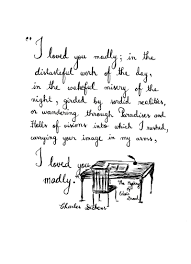 "I loved you madly; in the
distasteful work of the day,
in the wakeful misery of the
night, girded by sordid realities,
or wandering through Paradises and
Hells of visions into which I rushed,
carrying your image in my arms,
I loved you
madly.
The Mystery of
Edwin
Drood
Charles Dickens